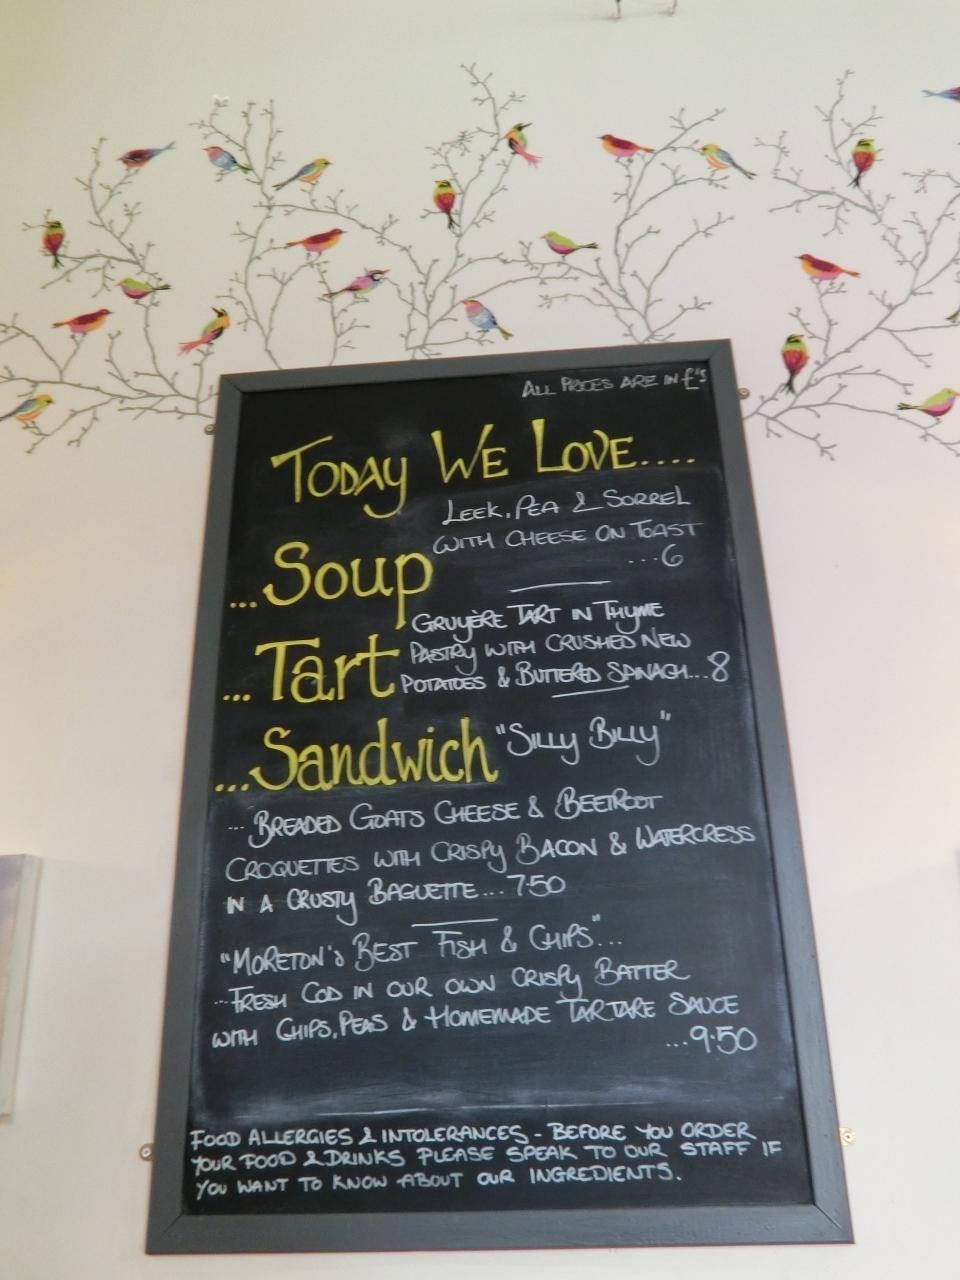 ALL PRICES ARE IN £'S
TODAY WE LOVE....
LEEK, PEA & SORREL
WITH CHEESE ON TOAST
...6
...Soup
GRUYÈRE TART IN THYME
PASTRY WITH CRUSHED NEW
POTATOES & BUTTERED SPINACH...8
...Tart
...Sandwich "SILLY BILLY"
...BREADED GOATS CHEESE & BEETROOT
CROQUETTES WITH CRISPY BACON & WATERCRESS
IN A CRUSTY BAGUETTE...7.50
"MORETON'S BEST FISH & CHIPS"...
...FRESH COD IN OUR OWN CRISPY BATTER
WITH CHIPS, PEAS & HOMEMADE TARTARE SAUCE
...9.50
FOOD ALLERGIES & INTOLERANCES - BEFORE YOU ORDER
YOUR FOOD & DRINKS PLEASE SPEAK TO OUR STAFF IF
YOU WANT TO KNOW ABOUT OUR INGREDIENTS.